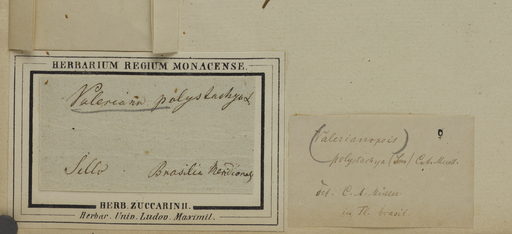 HERBARIUM REGIUM MONACENSE.
Valeriana polystachya
Sello Brasilia Meridional
HERB. ZUCCARINII.
Herbar. Univ. Ludov. Maximil.
(Valerianopsis)
polystachya (Sm) C.A. Muell.
det. C. A. Müller
in Fl. brasil.